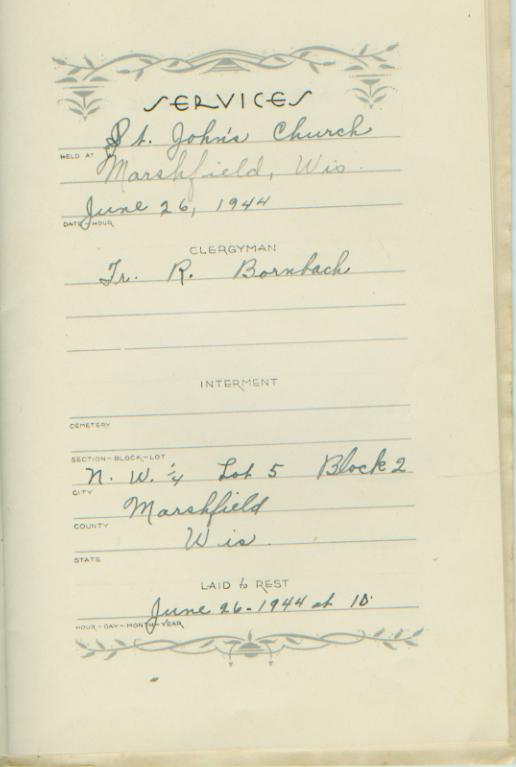 SERVICES
St. John's Church
HELD AT
Marshfield, Wis.
June 26, 1944
DATE - HOUR
CLERGYMAN
Fr. R. Bornbach
INTERMENT
CEMETERY
SECTION - BLOCK - LOT
N. W. 1/4 Lot 5 Block 2
CITY
Marshfield
COUNTY
Wis.
STATE
LAID to REST
June 26 - 1944 at 10.
HOUR - DAY - MONTH - YEAR